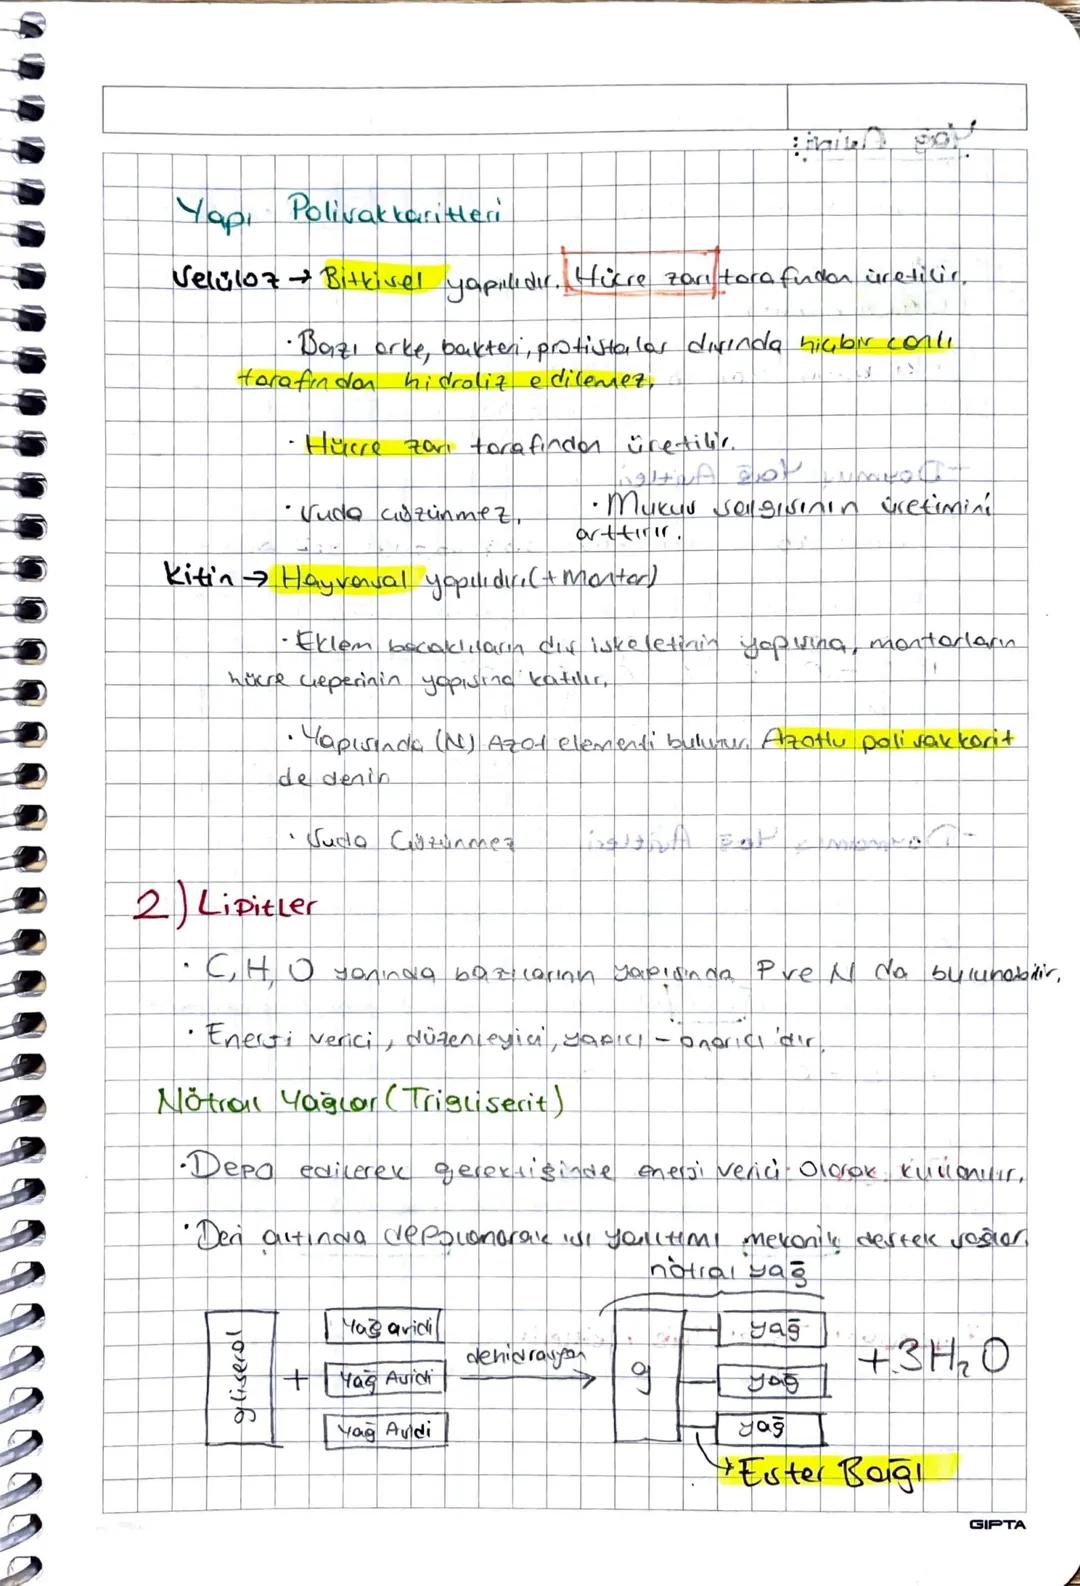 Yapı Polisakkaritleri
Selüloz → Bitkisel yapılıdır. Hücre zarı tarafından üretilir.
· Bazı arke, bakteri, protistalar dışında hiçbir canlı
tarafından hidroliz edilemez.
· Hücre zarı tarafından üretilir.
· Suda çözünmez. · Mukus salgısının üretimini
arttırır.
Kitin → Hayvansal yapılıdır. (+ Mantar)
· Eklem bacaklıların dış iskeletinin yapısına, mantarların
hücre çeperinin yapısına katılır.
· Yapısında (N) Azot elementi bulunur. Azotlu polisakkarit
de denir
· Suda Çözünmez
2) Lipitler
· C, H, O yanında bazılarının yapısında P ve N da bulunabilir.
· Enerji verici, düzenleyici, yapıcı - onarıcı'dır.
Nötral Yağlar (Trigliserit)
· Depo edilerek gerektiğinde enerji verici olarak kullanılır.
· Deri altında depolanarak ısı yalıtımı mekanik destek sağlar.
nötral yağ
gliserol + Yağ asidi Yağ Asidi Yağ Asidi dehidrasyon → g yağ yağ yağ + 3H₂O
→ Ester Bağı
GIPTA